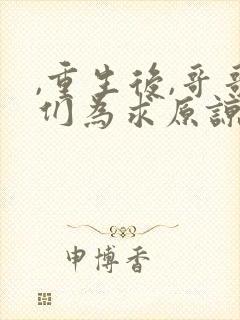 ,重生後,哥哥
们為求原諒
申博香